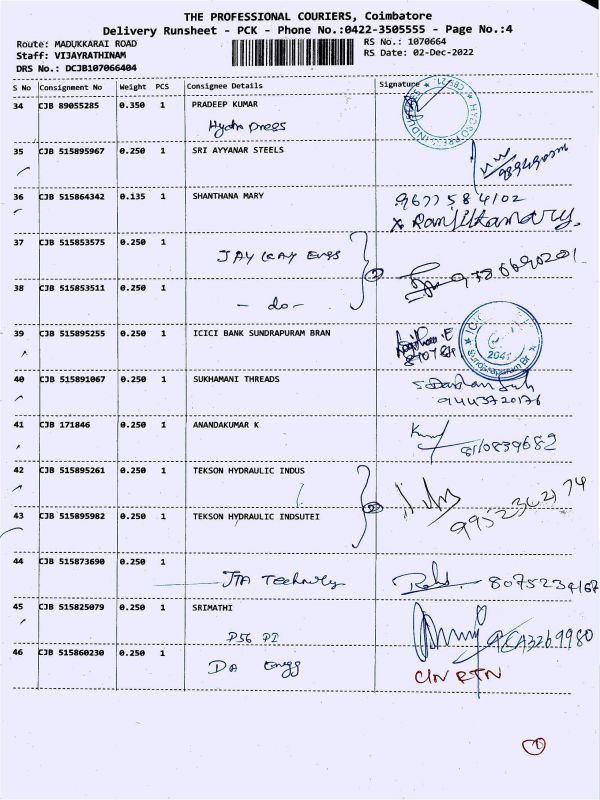 THE PROFESSIONAL COURIERS, Coimbatore
Delivery Runsheet - PCK - Phone No.:0422-3505555 - Page No.:4
Route: MADUKKARAI ROAD RS No.: 1070664
Staff: VIJAYRATHINAM RS Date: 02-Dec-2022
DRS No.: DCJB107066404
S No Consignment No Weight PCS Consignee Details Signature
34 CJB 89055285 0.350 1 PRADEEP KUMAR
Hydro Press
35 CJB 515895967 0.250 1 SRI AYYANAR STEELS
36 CJB 515864342 0.135 1 SHANTHANA MARY 9677584102
37 CJB 515853575 0.250 1
JAY KAY Engg
38 CJB 515853511 0.250 1
- do -
39 CJB 515895255 0.250 1 ICICI BANK SUNDRAPURAM BRAN
40 CJB 515891067 0.250 1 SUKHAMANI THREADS
9443720176
41 CJB 171846 0.250 1 ANANDAKUMAR K
8110839682
42 CJB 515895261 0.250 1 TEKSON HYDRAULIC INDUS
43 CJB 515895982 0.250 1 TEKSON HYDRAULIC INDSUTEI
44 CJB 515873690 0.250 1
8075234167
45 CJB 515825079 0.250 1 SRIMATHI
46 CJB 515860230 0.250 1
DA Engg
CIN RTN